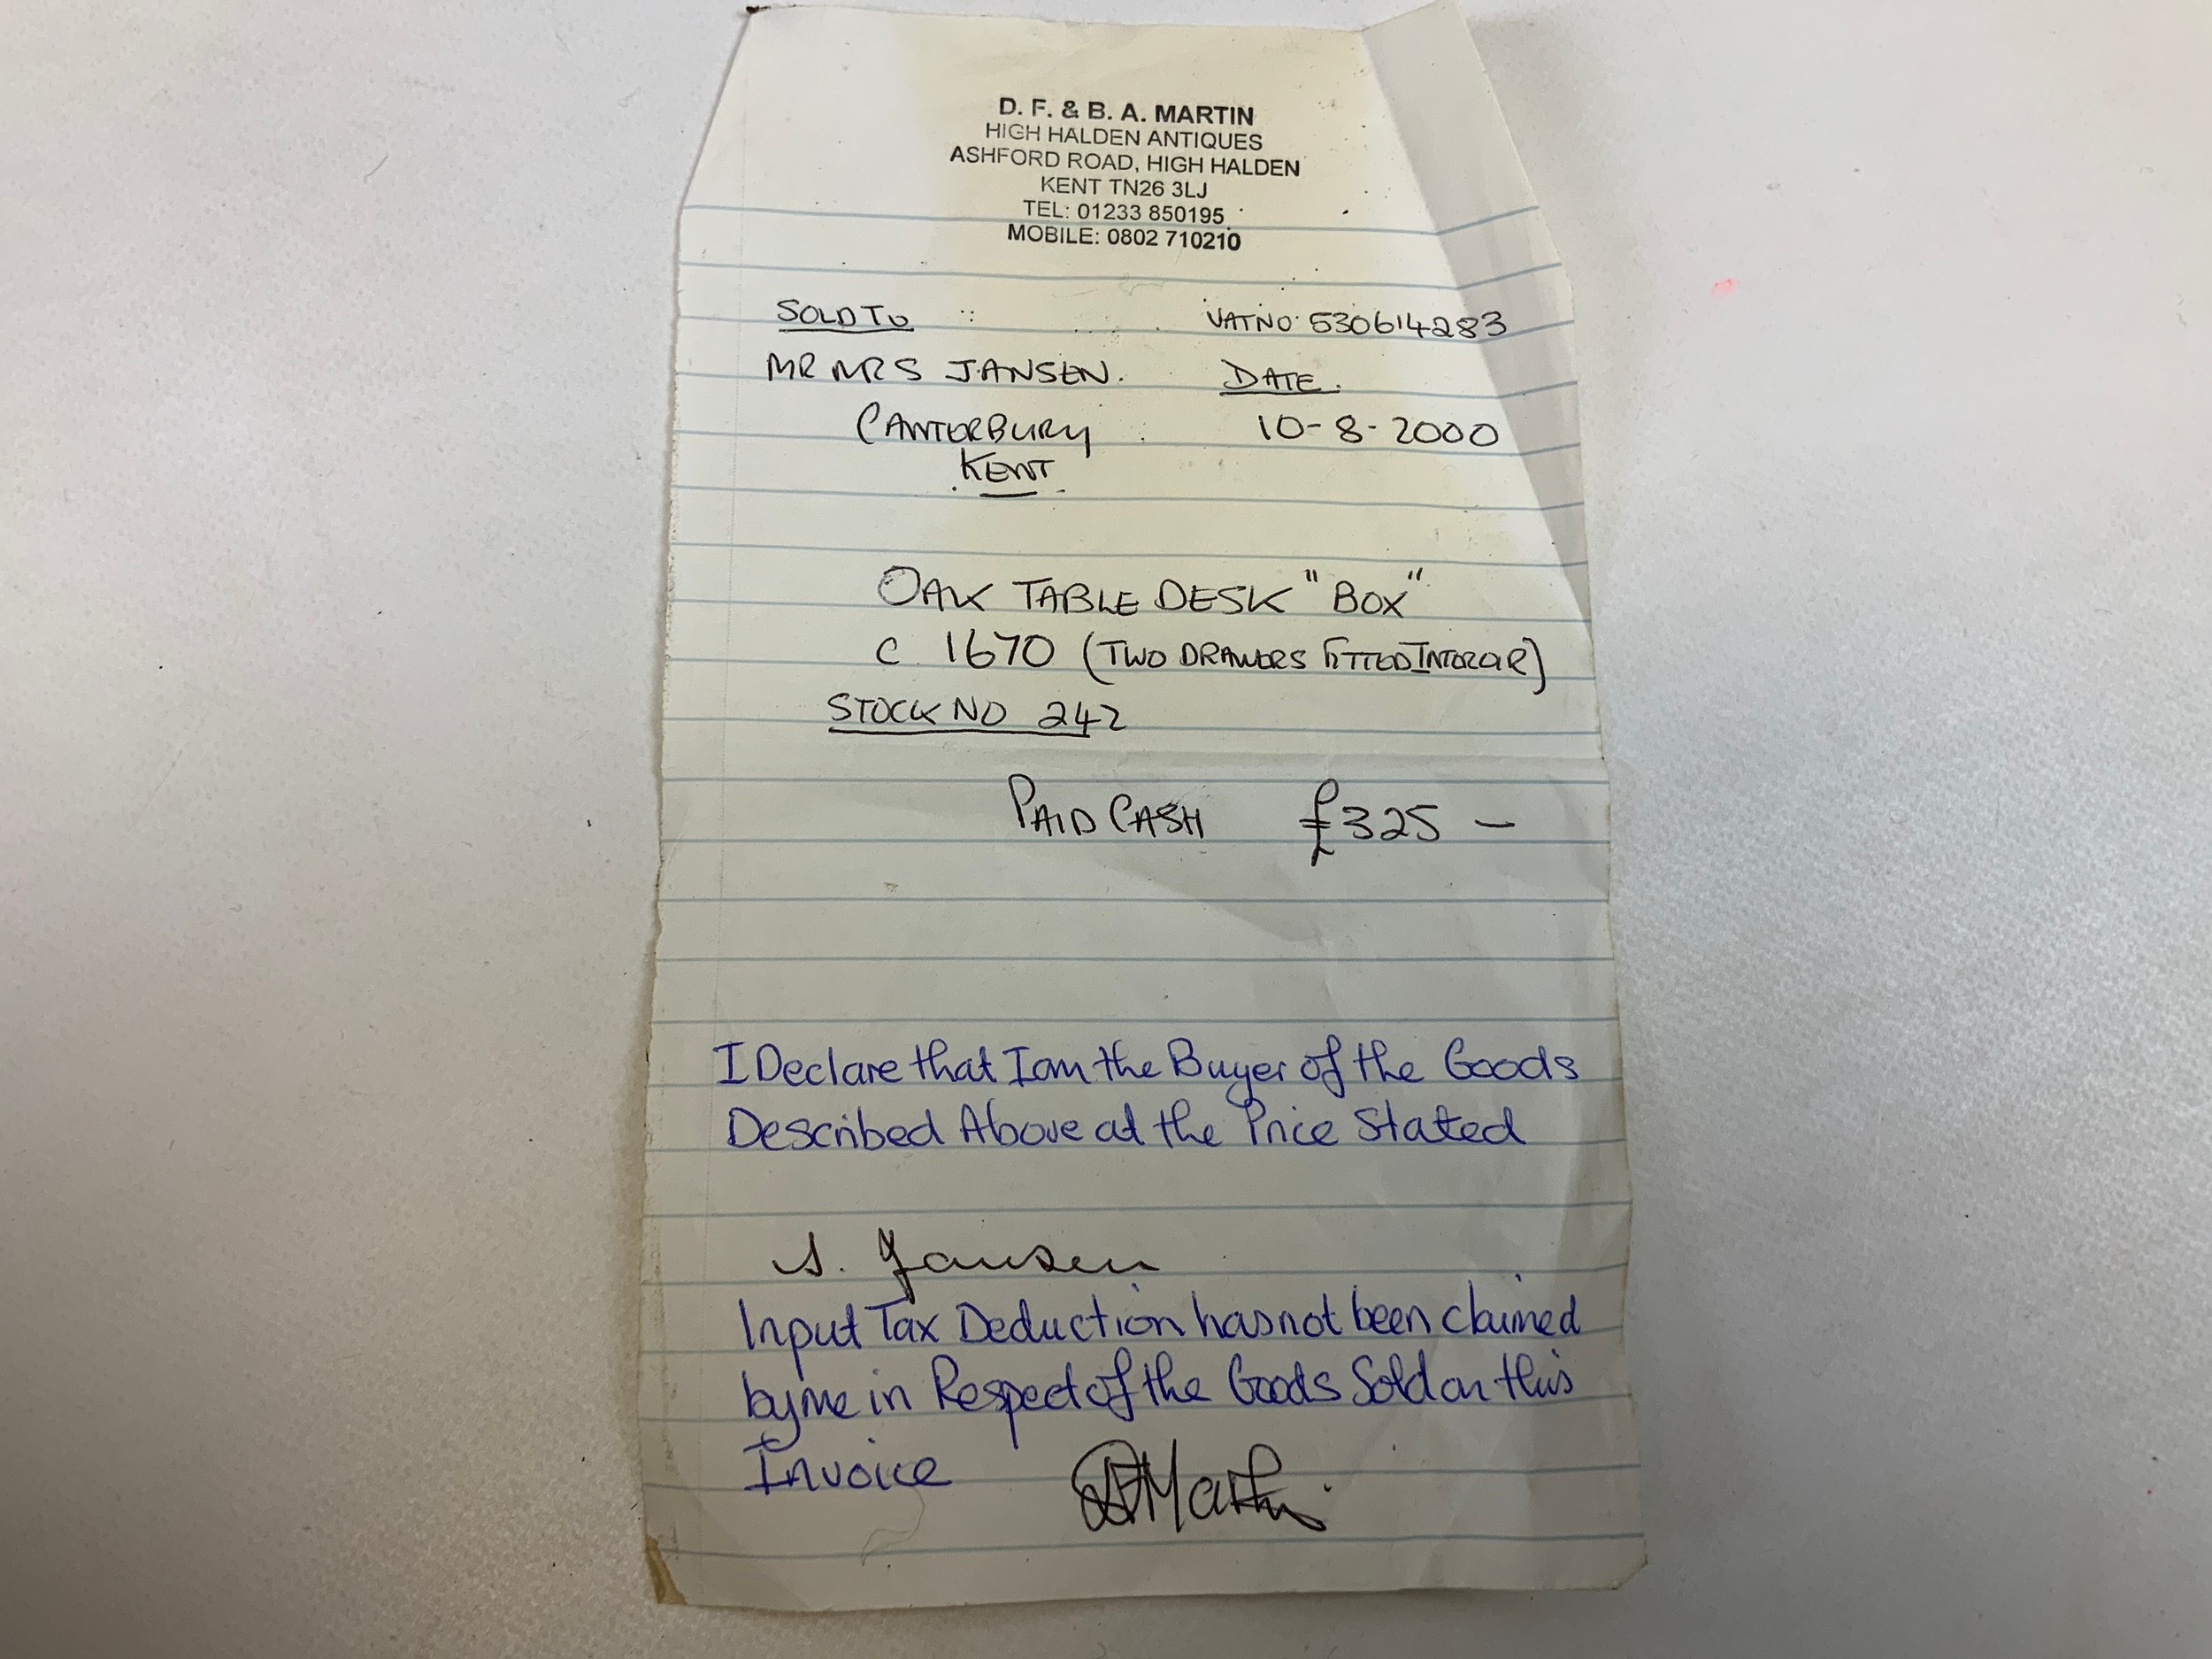 D. F. & B. A. MARTIN
HIGH HALDEN ANTIQUES
ASHFORD ROAD, HIGH HALDEN
KENT TN26 3LJ
TEL: 01233 850195
MOBILE: 0802 710210
SOLD TO VAT NO 530614283
MR MRS JANSEN. DATE.
CANTERBURY 10-8-2000
KENT
OAK TABLE DESK "BOX"
c 1670 (TWO DRAWERS FITTED INTERIOR)
STOCK NO 242
PAID CASH £325 —
I Declare that I am the Buyer of the Goods
Described Above at the Price Stated
S. Jansen
Input Tax Deduction has not been claimed
by me in Respect of the Goods Sold on this
Invoice DF Martin